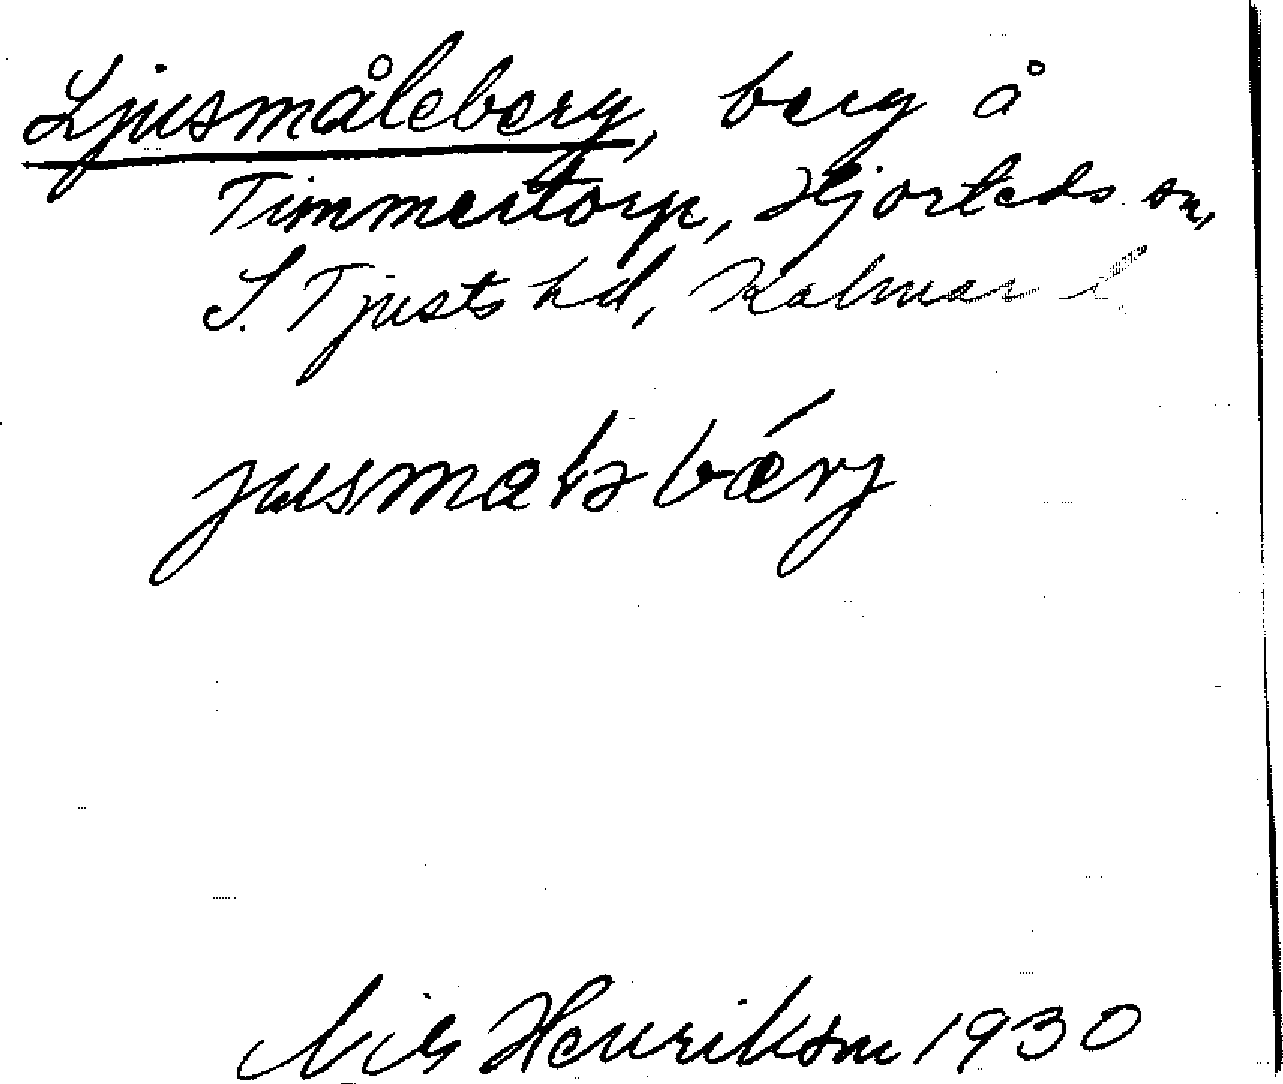 Ljusmåleberg, berg å
Timmertorp, Hjorteds sn,
S. Tjusts hd, Kalmar l.
Nils Henrikson 1930